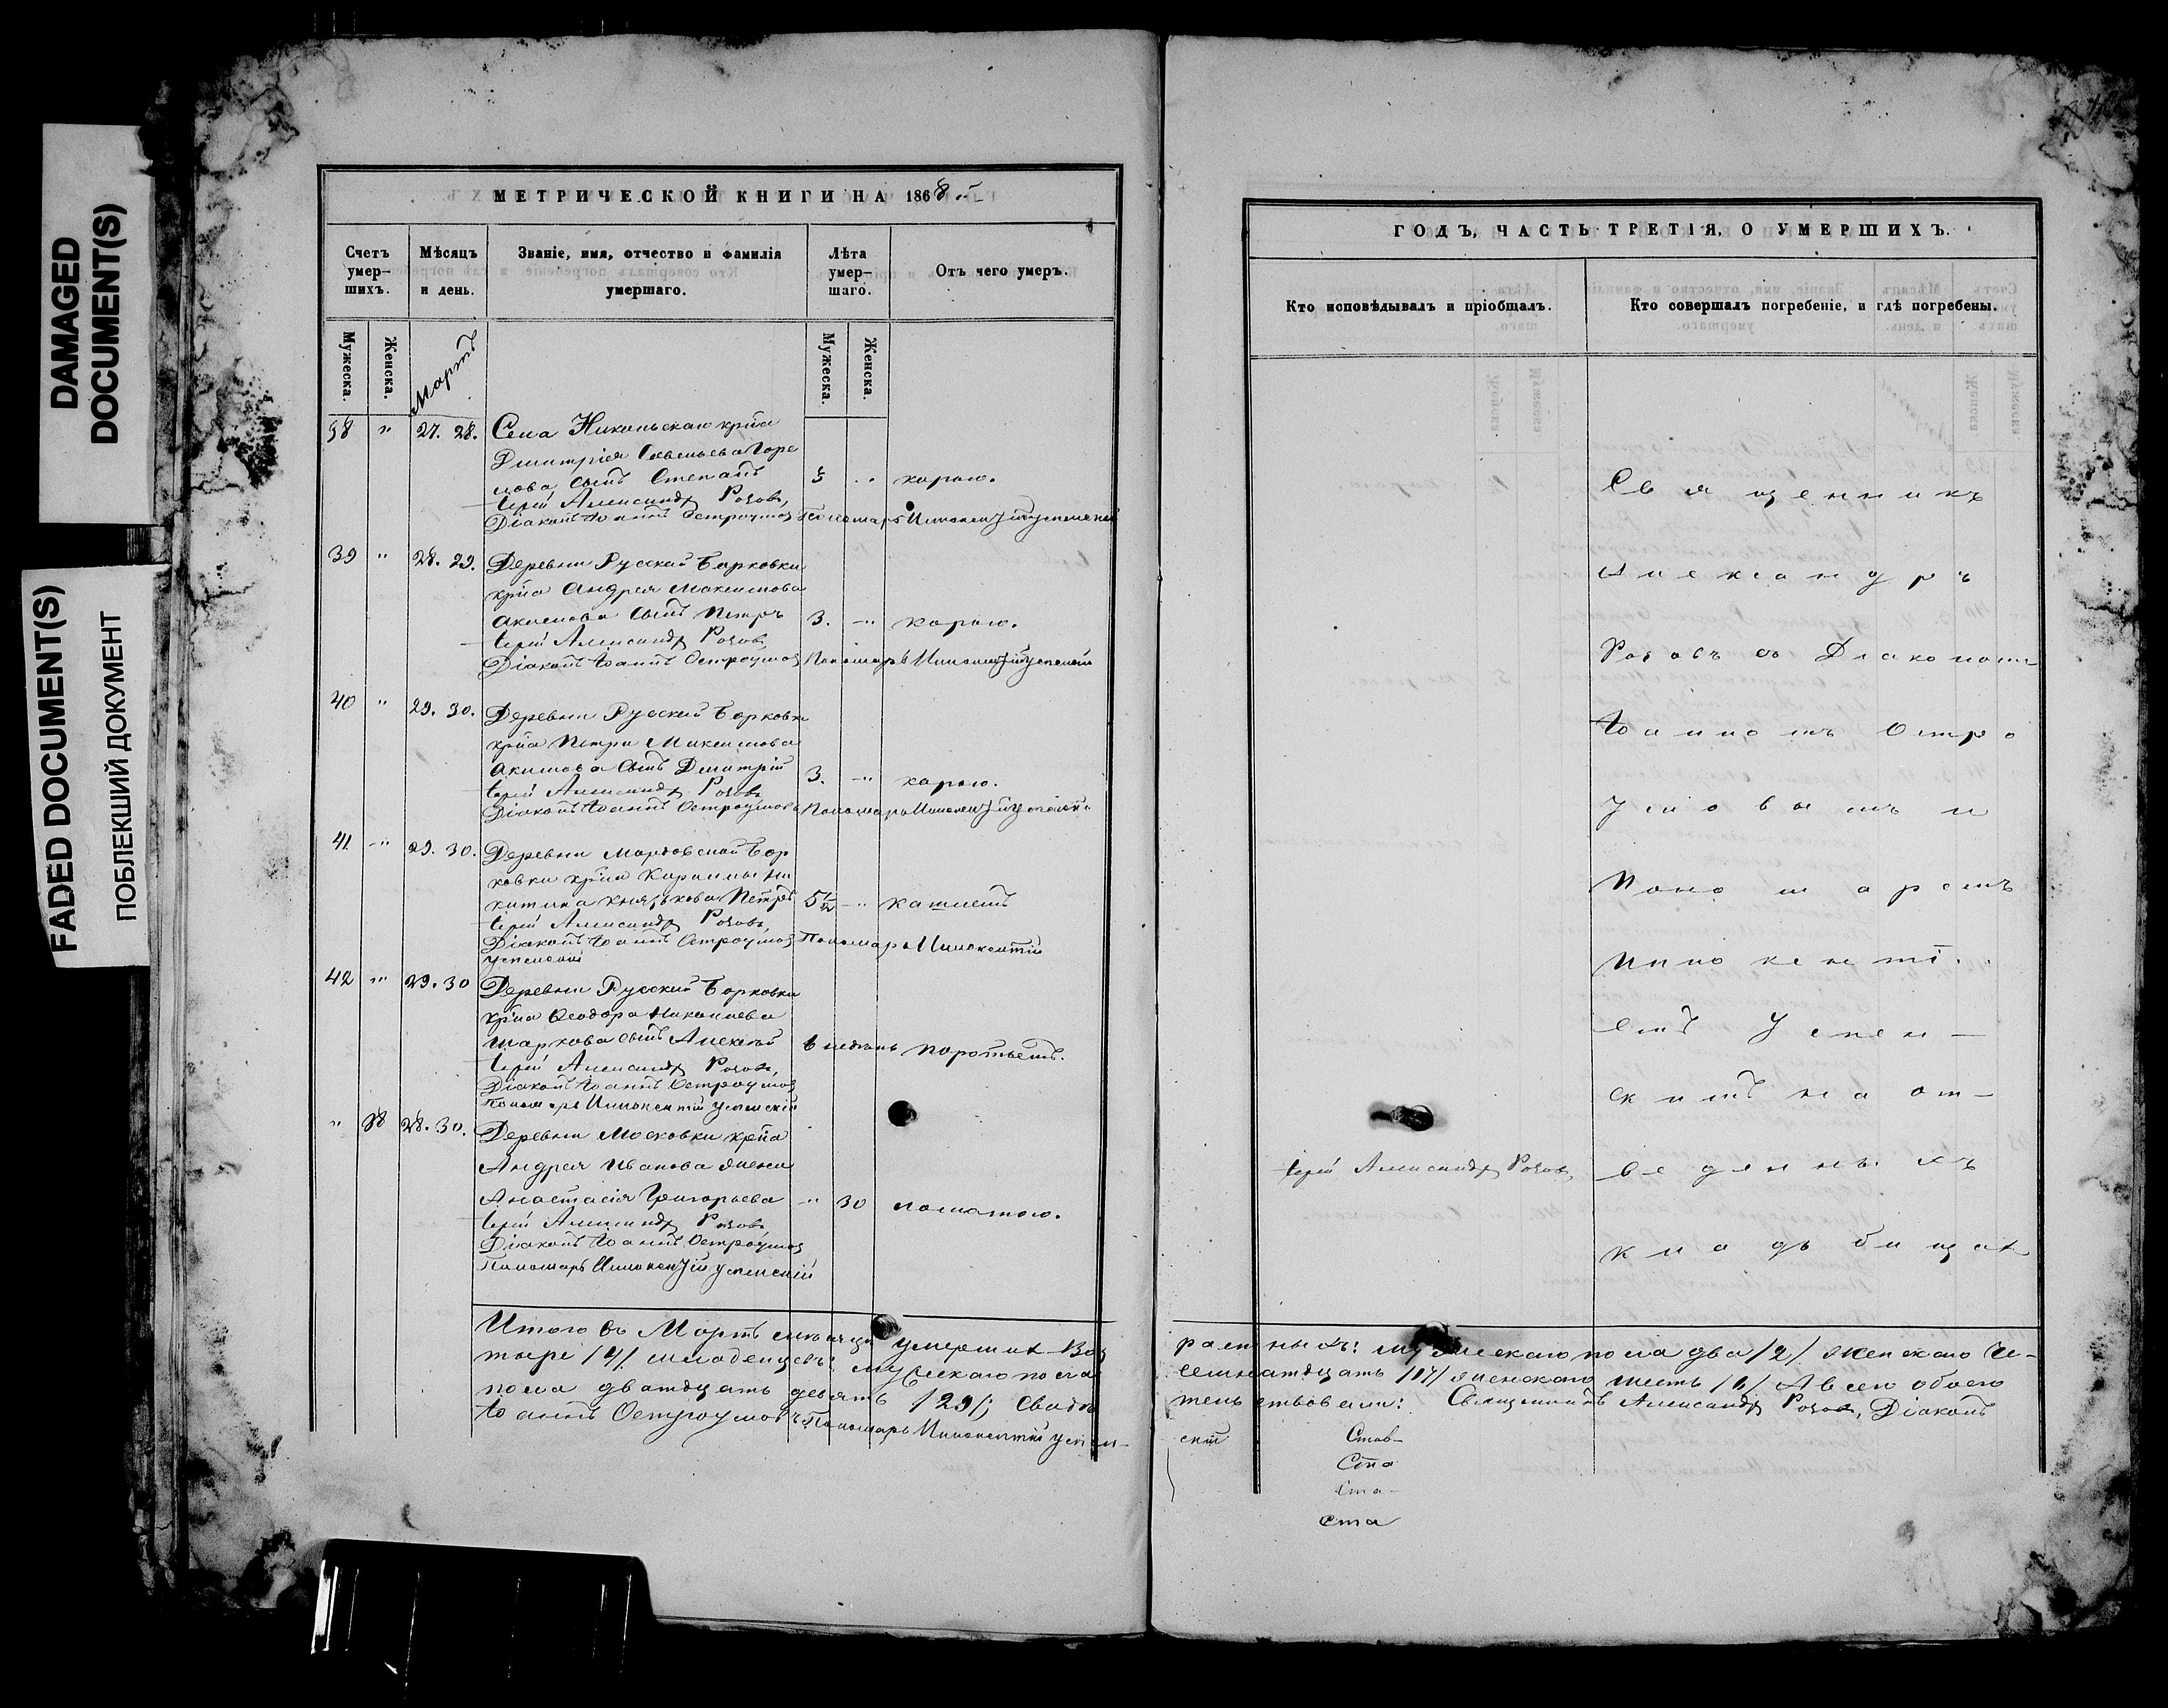 DAMAGED
DOCUMENT(S)
FADED DOCUMENT(S)
ПОБЛЕКШИЙ ДОКУМЕНТ
МЕТРИЧЕСКОЙ КНИГИ НА 1868
Счетъ
умер-
шихъ.
Мѣсяцъ
и день.
Званіе, имя, отчество и фамилія
умершаго.
Лѣта
умер-
шаго.
Отъ чего умеръ.
Мужеска.
Женска.
Мартъ
Мужеска.
Женска.
38 " 27. 28. Села Никольскаго крнa
Дмитрія Савельева Горе
лова сынъ Степанъ 3 " корью.
Іерей Александръ Розовъ,
Діаконъ Іоаннъ Остроумовъ Пономарь Иннокентій Успенскій
39 " 28. 29. Деревни Русской Борковки
крнa Андрея Максимова
Акимова сынъ Петръ 3. " корью.
Іерей Александръ Розовъ,
Діаконъ Іоаннъ Остроумовъ Пономарь Иннокентій Успенскій
40 " 29. 30. Деревни Русской Борковки
крнa Петра Максимова
Акимова сынъ Дмитрій 3. " корью.
Іерей Александръ Розовъ,
Діаконъ Іоаннъ Остроумовъ Пономарь Иннокентій Успенскій
41 " 29. 30. Деревни Мордовской Бор
ковки крнa Ни
китина Князькова Петръ 5½ " кашлемъ
Іерей Александръ Розовъ,
Діаконъ Іоаннъ Остроумовъ Пономарь Иннокентій
Успенскій
42 " 29. 30 Деревни Русской Борковки
крнa Ѳеодора Николаева
Маркова сынъ Алексѣй 6 недѣль
Іерей Александръ Розовъ,
Діаконъ Іоаннъ Остроумовъ
Пономарь Иннокентій Успенскій
" 38 28. 30. Деревни Московки крнa
Андрея Иванова жена
Анастасія Григорьева " 30 ломотою.
Іерей Александръ Розовъ,
Діаконъ Іоаннъ Остроумовъ
Пономарь Иннокентій Успенскій
Итого въ Мартѣ мѣсяцѣ умершихъ Воз
тыре /4/ младенцевъ: мужескаго пола
пола двадцать девять /29/; Свидѣ
Іоаннъ Остроумовъ Пономарь Иннокентій Успен-
ГОДЪ, ЧАСТЬ ТРЕТІЯ, О УМЕРШИХЪ.
Кто исповѣдывалъ и пріобщалъ.
Кто совершалъ погребеніе, и гдѣ погребены.
Священникъ
Александръ
Розовъ съ Діакономъ
Іоанномъ Остро
умовымъ и
Пономаремъ
Иннокенті-
емъ Успен-
скимъ на от-
Іерей Александръ Розовъ, веденныхъ
кладбищахъ
растныхъ: мужескаго пола два /2/ женскаго че-
семнатдцать /17/ женскаго шесть /6/ А всего обоего
тельствовали: Священникъ Александръ Розовъ, Діаконъ
скій
Ста
Ста-
Ста